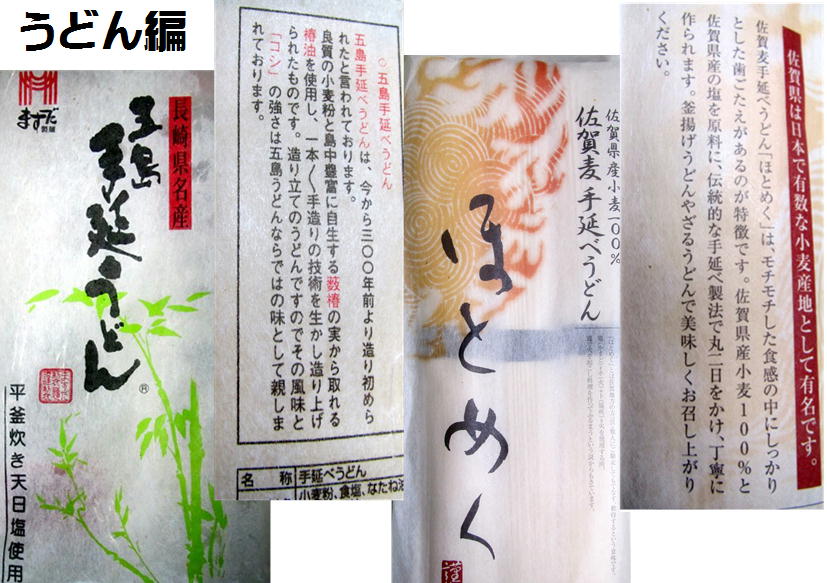 うどん編
ますだ
製麺
長崎県名産
五島
手延うどん
®
平釜炊き天日塩使用
○五島手延べうどん
五島手延べうどんは、今から三〇〇年前より造り初めら
れたと言われております。
良質の小麦粉と島中豊富に自生する薮椿の実から取れる
椿油を使用し、一本〱手造りの技術を生かし造り上げ
られたものです。造り立てのうどんですのでその風味と
「コシ」の強さは五島うどんならではの味として親しま
れております。
名称 手延べうどん
小麦粉、食塩、なたね油
佐賀県産小麦100%
佐賀麦 手延べうどん
ほとめく
謹
佐賀県は日本で有数な小麦産地として有名です。
佐賀麦手延べうどん「ほとめく」は、モチモチした食感の中にしっかり
とした歯ごたえがあるのが特徴です。佐賀県産小麦100%と
佐賀県産の塩を原料に、伝統的な手延べ製法で丸二日をかけ、丁寧に
作られます。釜揚げうどんやざるうどんで美味しくお召し上がり
ください。